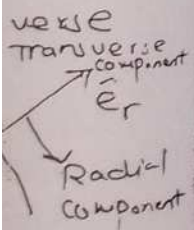 verse
Transverse
component
êr
Radial
component